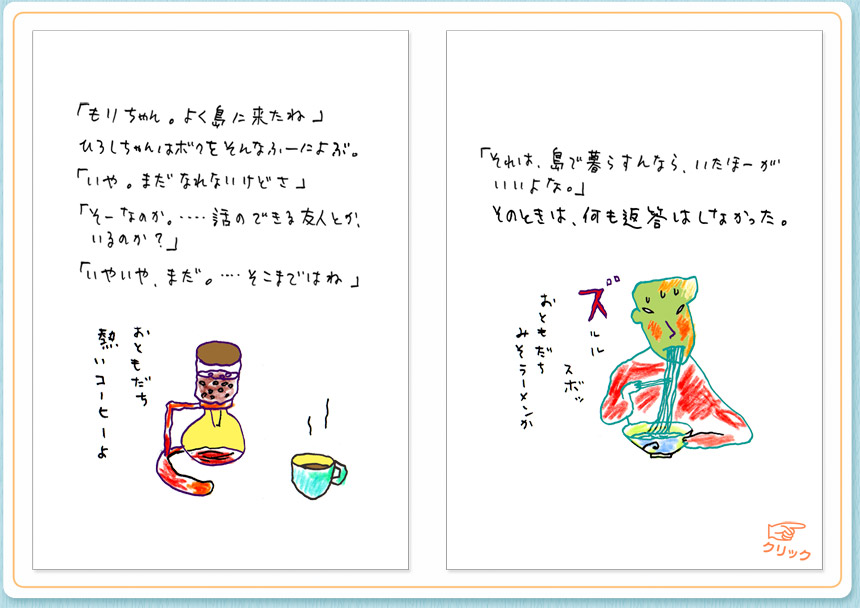 「もりちゃん。よく島に来たね」
ひろしちゃんはボクをそんなふーによぶ。
「いや。まだなれないけどさ」
「そーなのか。‥‥話のできる友人とか、
いるのか？」
「いやいや、まだ。‥‥そこまではね」
おともだち
熱いコーヒーよ
「それは、島で暮らすんなら、いたほーが
いいよな。」
そのときは、何も返答はしなかった。
ズルル
スボッ
おともだち
みそラーメンか
クリック